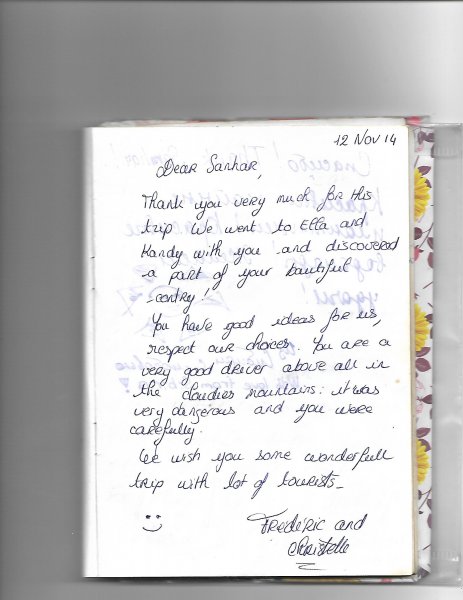 12 Nov 14
Dear Sankar,
Thank you very much for this
trip. We went to Ella and
Kandy with you and discovered
a part of your bautiful
contry!
You have good ideas for us,
respect our choices. You are a
very good driver above all in
the cloudies mountains: it was
very dangerous and you were
carefully.
We wish you some wonderfull
trip with lot of tourists
Frederic and
Christelle